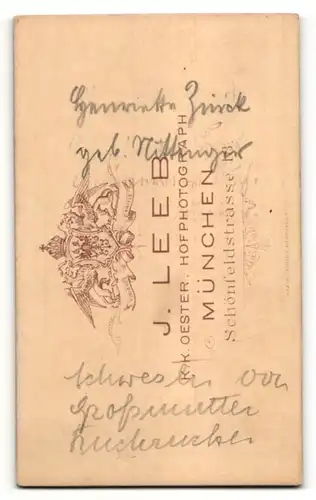 Henriette Zurek
geb. Nittinger
J. LEEB
K.K. OESTER. HOFPHOTOGRAPH
MÜNCHEN
Schönfeldstrasse 13.
Schwester von
Großmutter